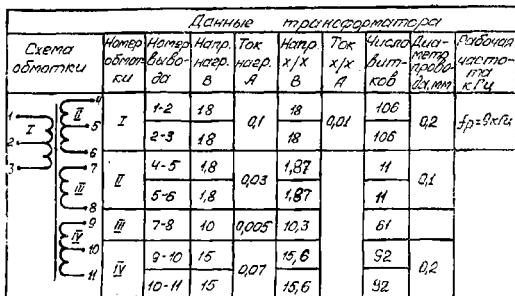 Данные трансформатора
Схема обмотки
Номер обмотки
Номер вывода
Напр. нагр. В
Ток нагр. А
Напр х/х В
Ток х/х А
Число витков
Диаметр провода, мм
Рабочая частота кГц
1
2
3
I
II
4
5
6
7
III
8
9
IV
10
11
I 1-2 18 0,1 18 0,01 106 0,2 fр=9кГц
2-3 18 18 106
II 4-5 1,8 0,03 1,87 11 0,1
5-6 1,8 1,87 11
III 7-8 10 0,005 10,3 61
IV 9-10 15 0,07 15,6 92 0,2
10-11 15 15,6 92